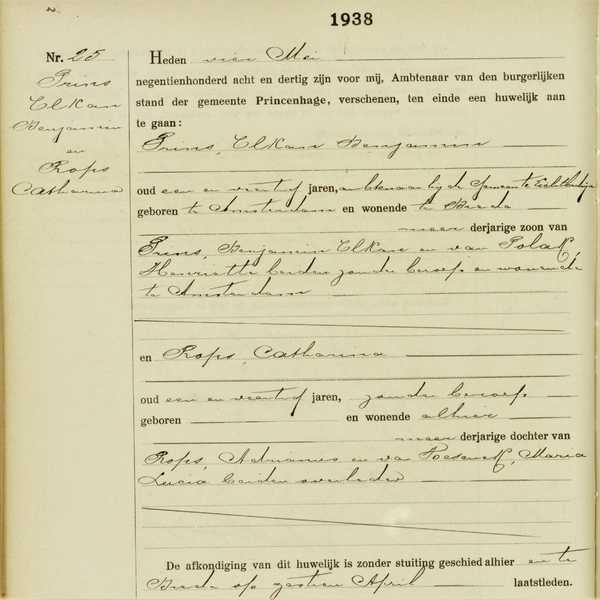 2
1938
Nr. 25
Prins
Elkan
Benjamin
en
Rops
Catharina
Heden vier Mei
negentienhonderd acht en dertig zijn voor mij, Ambtenaar van den burgerlijken
stand der gemeente Princenhage, verschenen, ten einde een huwelijk aan
te gaan:
Prins, Elkan Benjamin
oud een en veertig jaren, ambtenaar bij de Gemeente
geboren te Amsterdam en wonende te Breda
meer derjarige zoon van
Prins, Benjamin Elkan en van Polak,
Henriette beiden zonder beroep en wonende
te Amsterdam
en Rops, Catharina
oud een en veertig jaren, zonder beroep
geboren en wonende alhier
meer derjarige dochter van
Rops, Adrianus en van Maria
Lucia beiden overleden
De afkondiging van dit huwelijk is zonder stuiting geschied alhier en te
Breda op zestien April laatstleden.